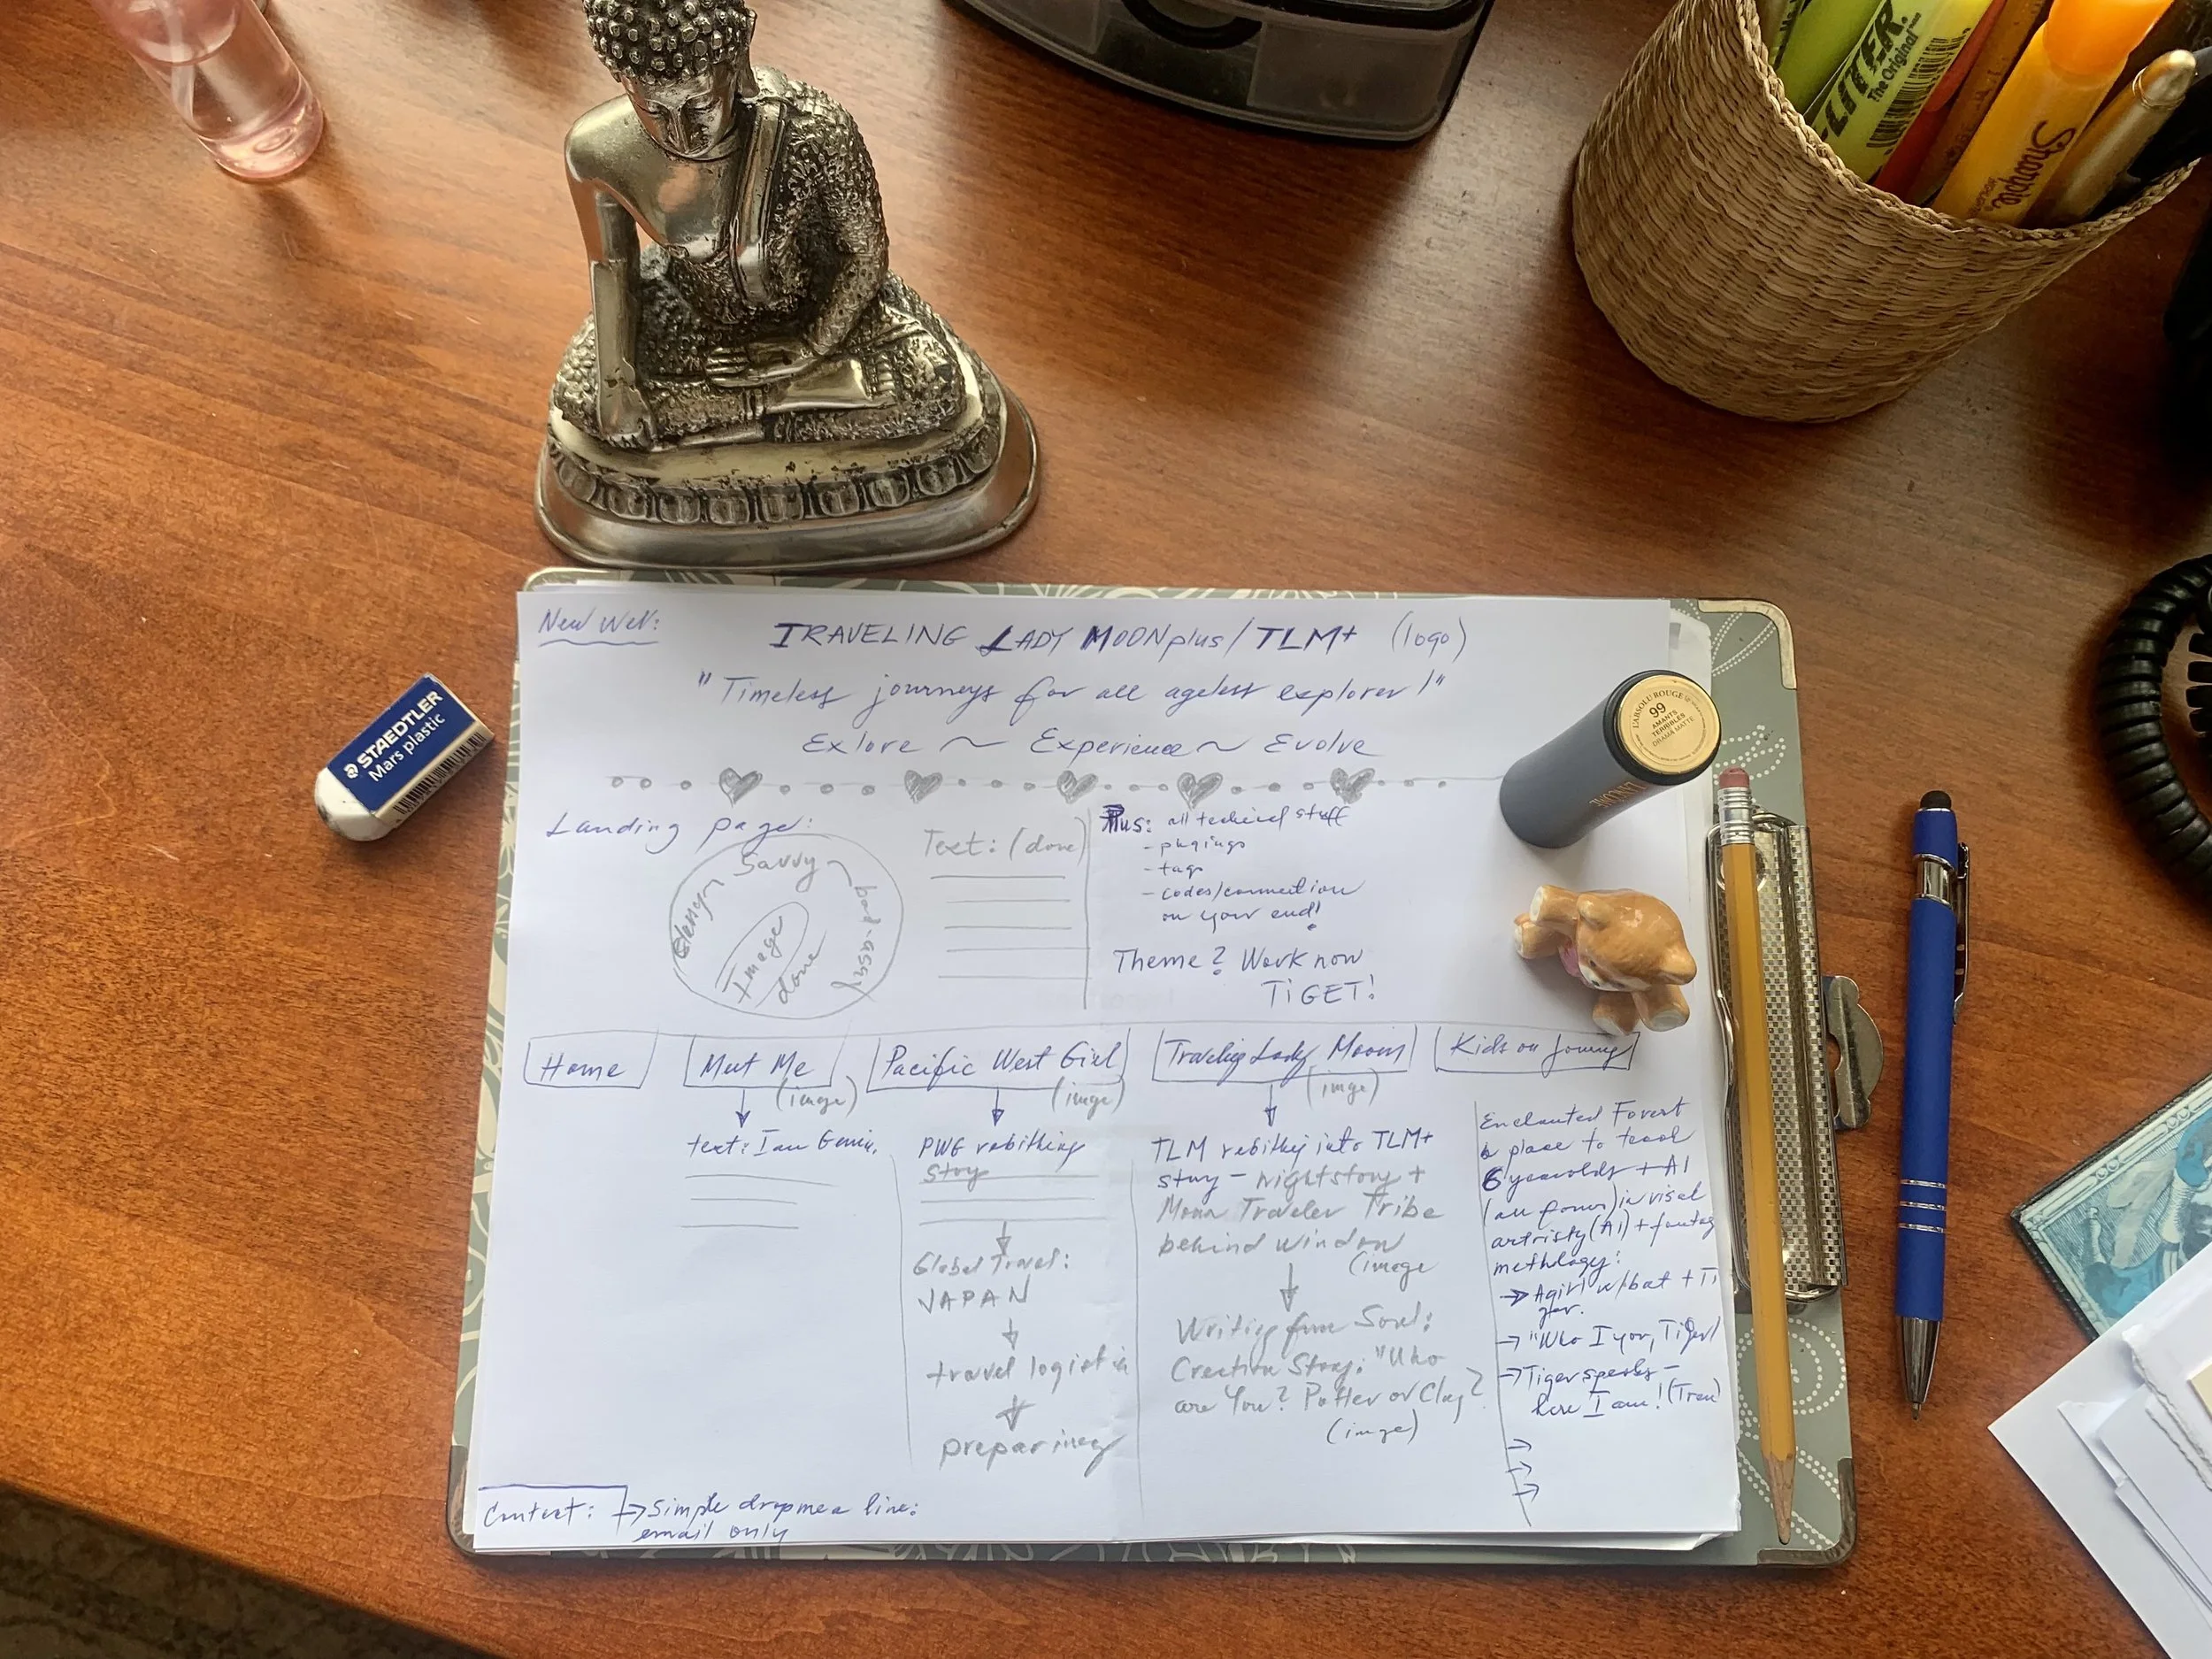 -LITER.
The Original
Sharpie
STAEDTLER
Mars plastic
L'ABSOLU ROUGE
99
AMANTS
TERRIBLES
DRAMA MATTE
LANCÔME
New Web:
TRAVELING LADY MOONplus/TLM+ (logo)
"Timeless journeys for all ageless explorer!"
Exlore ~ Experience ~ Evolve
Landing page:
Savvy
bad-assy
Image
done
Text: (done)
Plus: all techical stuff
- plugings
- tags
- codes/connection
on your end!
Theme? Work now
TIGET!
Home
Meet Me
(imge)
text: I am
Pacific West Girl
(imge)
PWG rebithing
story
Global Travel:
JAPAN
travel logisti
preparing
Traveling Lady Moon
(imge)
TLM rebithing into TLM+
story - nightstory +
Moon Traveler Tribe
behind window
(image
Writing from Soul:
Creation Story: "Who
are You? Potter or Clay?
(imge)
Kids on Journey
Enchanted Forest
a place to teach
6 yearolds + AI
in visal
artristy (AI) +
methlogy:
→ A girl w/bat + Ti
ger.
→ "Who I you, Tiger!
→ Tiger speaks -
here I am!
Contect: → Simple drop me a line:
email only